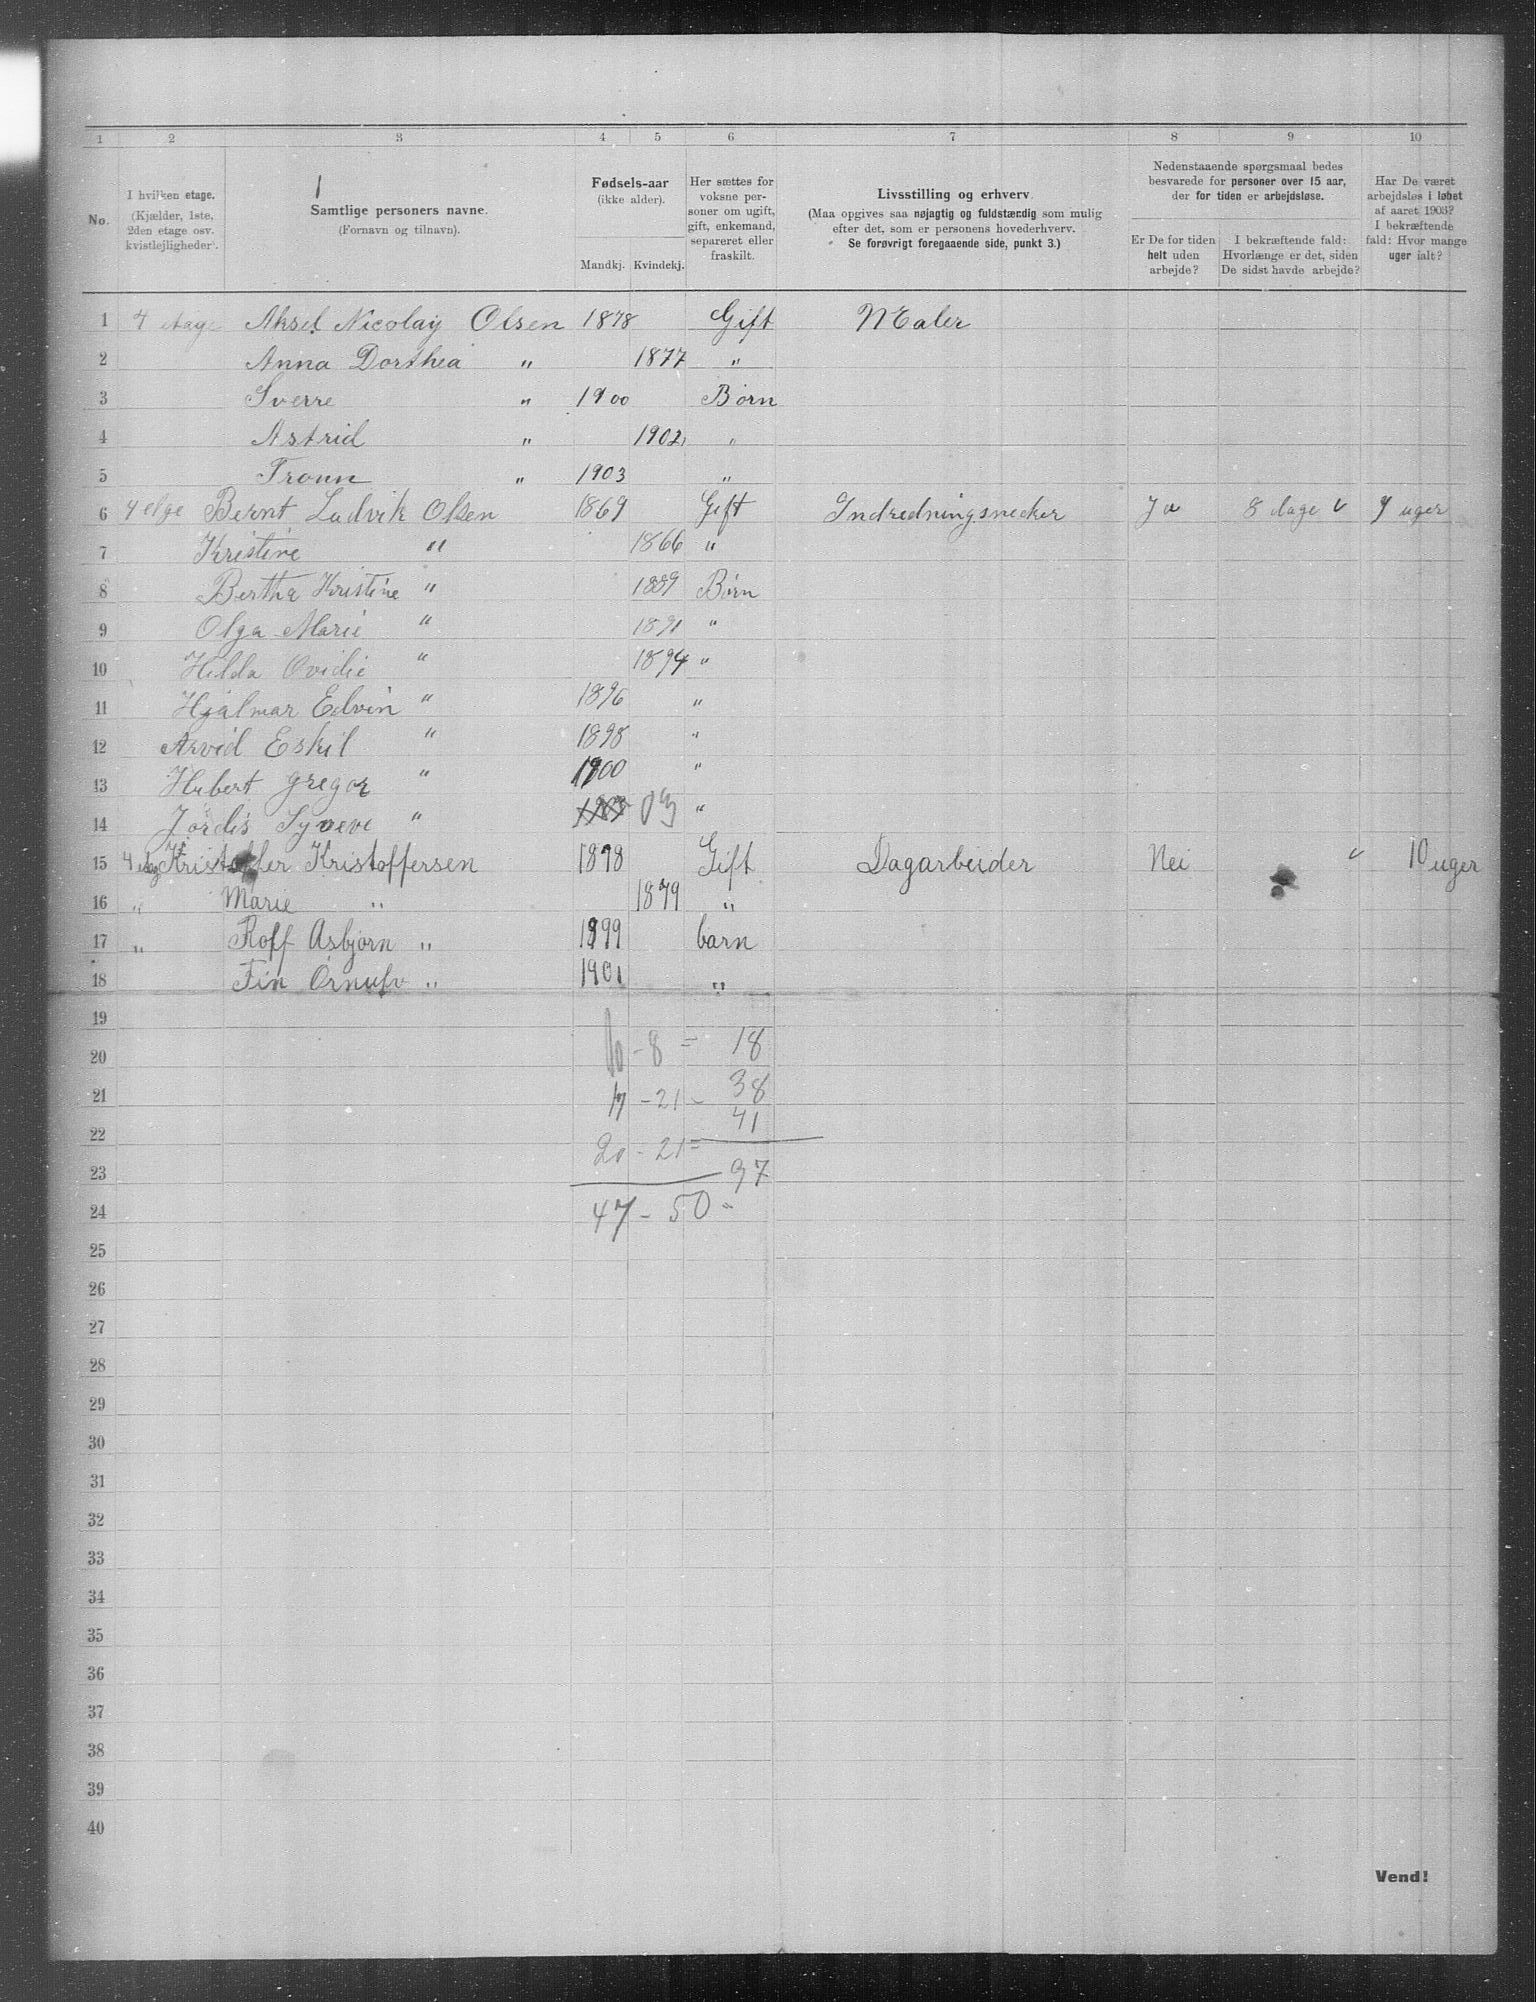 1 2 3 4 5 6 7 8 9 10
No.
I hvilken etage.
(Kjælder, 1ste,
2den etage osv.
kvistlejligheder).
1
Samtlige personers navne.
(Fornavn og tilnavn).
Fødsels-aar
(ikke alder).
Mandkj. Kvindekj.
Her sættes for
voksne per-
soner om ugift,
gift, enkemand,
separeret eller
fraskilt.
Livsstilling og erhverv.
(Maa opgives saa nøjagtig og fuldstændig som mulig
efter det, som er personens hovederhverv.
Se forøvrigt foregaaende side, punkt 3.)
Nedenstaaende spørgsmaal bedes
besvarede for personer over 15 aar,
der for tiden er arbejdsløse.
Er De for tiden
helt uden
arbejde?
I bekræftende fald:
Hvorlænge er det, siden
De sidst havde arbejde?
Har De været
arbejdsløs i løbet
af aaret 1903?
I bekræftende
fald: Hvor mange
uger ialt?
1 4 etage Aksel Nicolay Olsen 1878 Gift Maler
2 Anna Dorthea " 1877 "
3 Sverre " 1900 Børn
4 Astrid " 1902 "
5 Tronn " 1903 "
6 4 etge Bernt Ludvik Olsen 1869 Gift Indredningsnecker Ja 8 dage 9 uger
7 Kristine " 1866 "
8 Bertha Kristine " 1889 Børn
9 Olga Marie " 1891 "
10 Hilda Ovidie " 1894 "
11 Hjalmar Edvin " 1896 "
12 Arvid Eskil " 1898 "
13 Hubert gregor " 1900 "
14 Jordis Synove " 1903 03 "
15 4 etag Kristoffer Kristoffersen 1878 Gift Dagarbeider Nei 10 uger
16 " Marie " 1879 "
17 " Roff Asbjørn " 1899 barn
18 Fin Ørnulv " 1901 "
19
20 10 - 8 = 18
21 17 - 21 - 38
22 41
20 - 21 =
23 97
24 47 - 50 "
25
26
27
28
29
30
31
32
33
34
35
36
37
38
39
40
Vend!